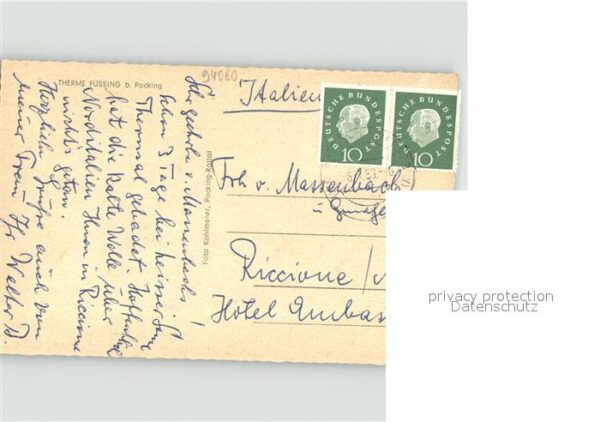 THERME FÜSSING b. Pocking
94060
Sehr geehrte v. Massenbachs!
Schon 3 Tage bei heisser
Thermal gebadet. Hoffentlich
hat die kalte Welle über
Norditalien Ihnen in Riccione
nichts getan.
Herzliche Grüße auch von
meiner Frau, Ihr Walter D.
Foto Kohlmeier, Pocking-Rottal
Italien
DEUTSCHE BUNDESPOST
10
DEUTSCHE BUNDESPOST
10
Frh v. Massenbach
Riccione
Hotel
privacy protection
Datenschutz